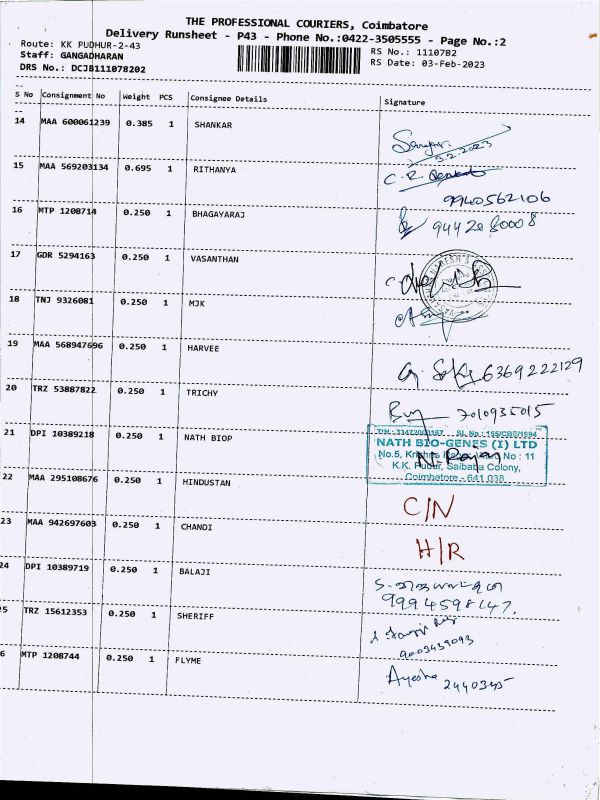 THE PROFESSIONAL COURIERS, Coimbatore
Delivery Runsheet - P43 - Phone No.:0422-3505555 - Page No.:2
Route: KK PUDHUR-2-43 RS No.: 1110782
Staff: GANGADHARAN RS Date: 03-Feb-2023
DRS No.: DCJB111078202
S No Consignment No Weight PCS Consignee Details Signature
14 MAA 600061239 0.385 1 SHANKAR
3.2.2023
15 MAA 569203134 0.695 1 RITHANYA C.R.
9940562106
16 MTP 1208714 0.250 1 BHAGAYARAJ 9442080008
17 GDR 5294163 0.250 1 VASANTHAN
18 TNJ 9326081 0.250 1 MJK
19 MAA 568947696 0.250 1 HARVEE 6369222129
20 TRZ 53887822 0.250 1 TRICHY 7010935015
21 DPI 10389218 0.250 1 NATH BIOP
NATH BIO-GENES (I) LTD
No.5, No : 11
K.K. Pudur, Saibaba Colony,
Coimbatore - 641 038
22 MAA 295108676 0.250 1 HINDUSTAN C/N
23 MAA 942697603 0.250 1 CHANDI H/R
24 DPI 10389719 0.250 1 BALAJI
9994598147.
25 TRZ 15612353 0.250 1 SHERIFF
9003439093
6 MTP 1208744 0.250 1 FLYME Ayesha 2440345